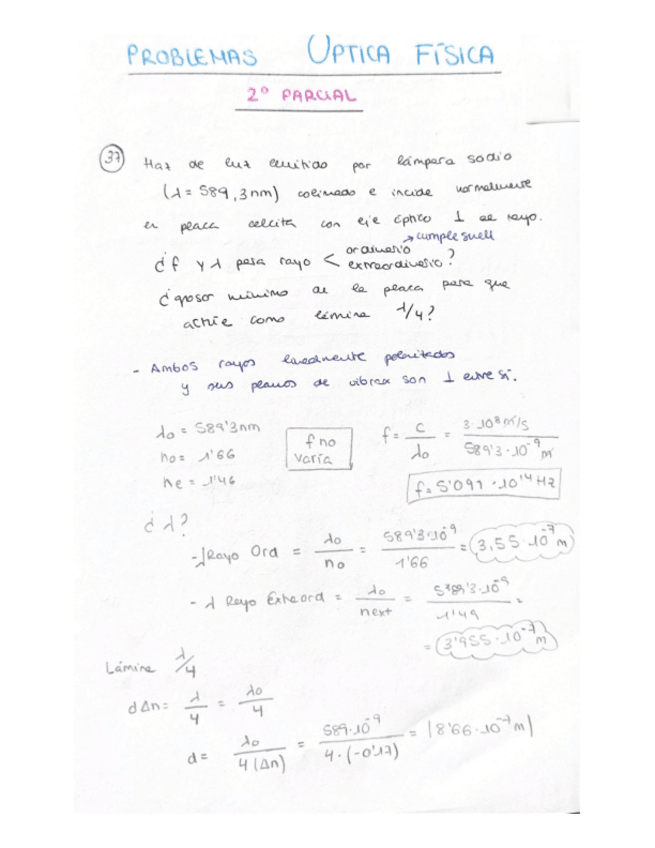 PROBLEMAS OPTICA FÍSICA
2º PARCIAL
37 Haz de luz emitido por lámpara sodio
(λ = 589,3nm) colimado e incide normalmente
en placa calcita con eje óptico ⊥ al rayo.
→ cumple snell
¿f y λ para rayo < ordinario
extraordinario?
¿grosor mínimo de la placa para que
actúe como lámina λ/4?
- Ambos rayos linealmente polarizados
y sus planos de vibrac son ⊥ entre sí.
λo = 589'3nm
no = 1'66
ne = 1'46
f no
varía
f = c/λo = 3·10⁸ m/s / 589'3·10⁻⁹ m
f = 5'091·10¹⁴ Hz
¿λ?
- λ Rayo Ord = λo/no = 589'3·10⁻⁹/1'66 = 3,55·10⁻⁷ m
- λ Rayo Extraord = λo/next = 589'3·10⁻⁹/1'49 =
= 3'955·10⁻⁷ m
Lámina λ/4
dΔn = λ/4 = λo/4
d = λo/4(Δn) = 589·10⁻⁹/4·(-0'17) = |8'66·10⁻⁷ m|